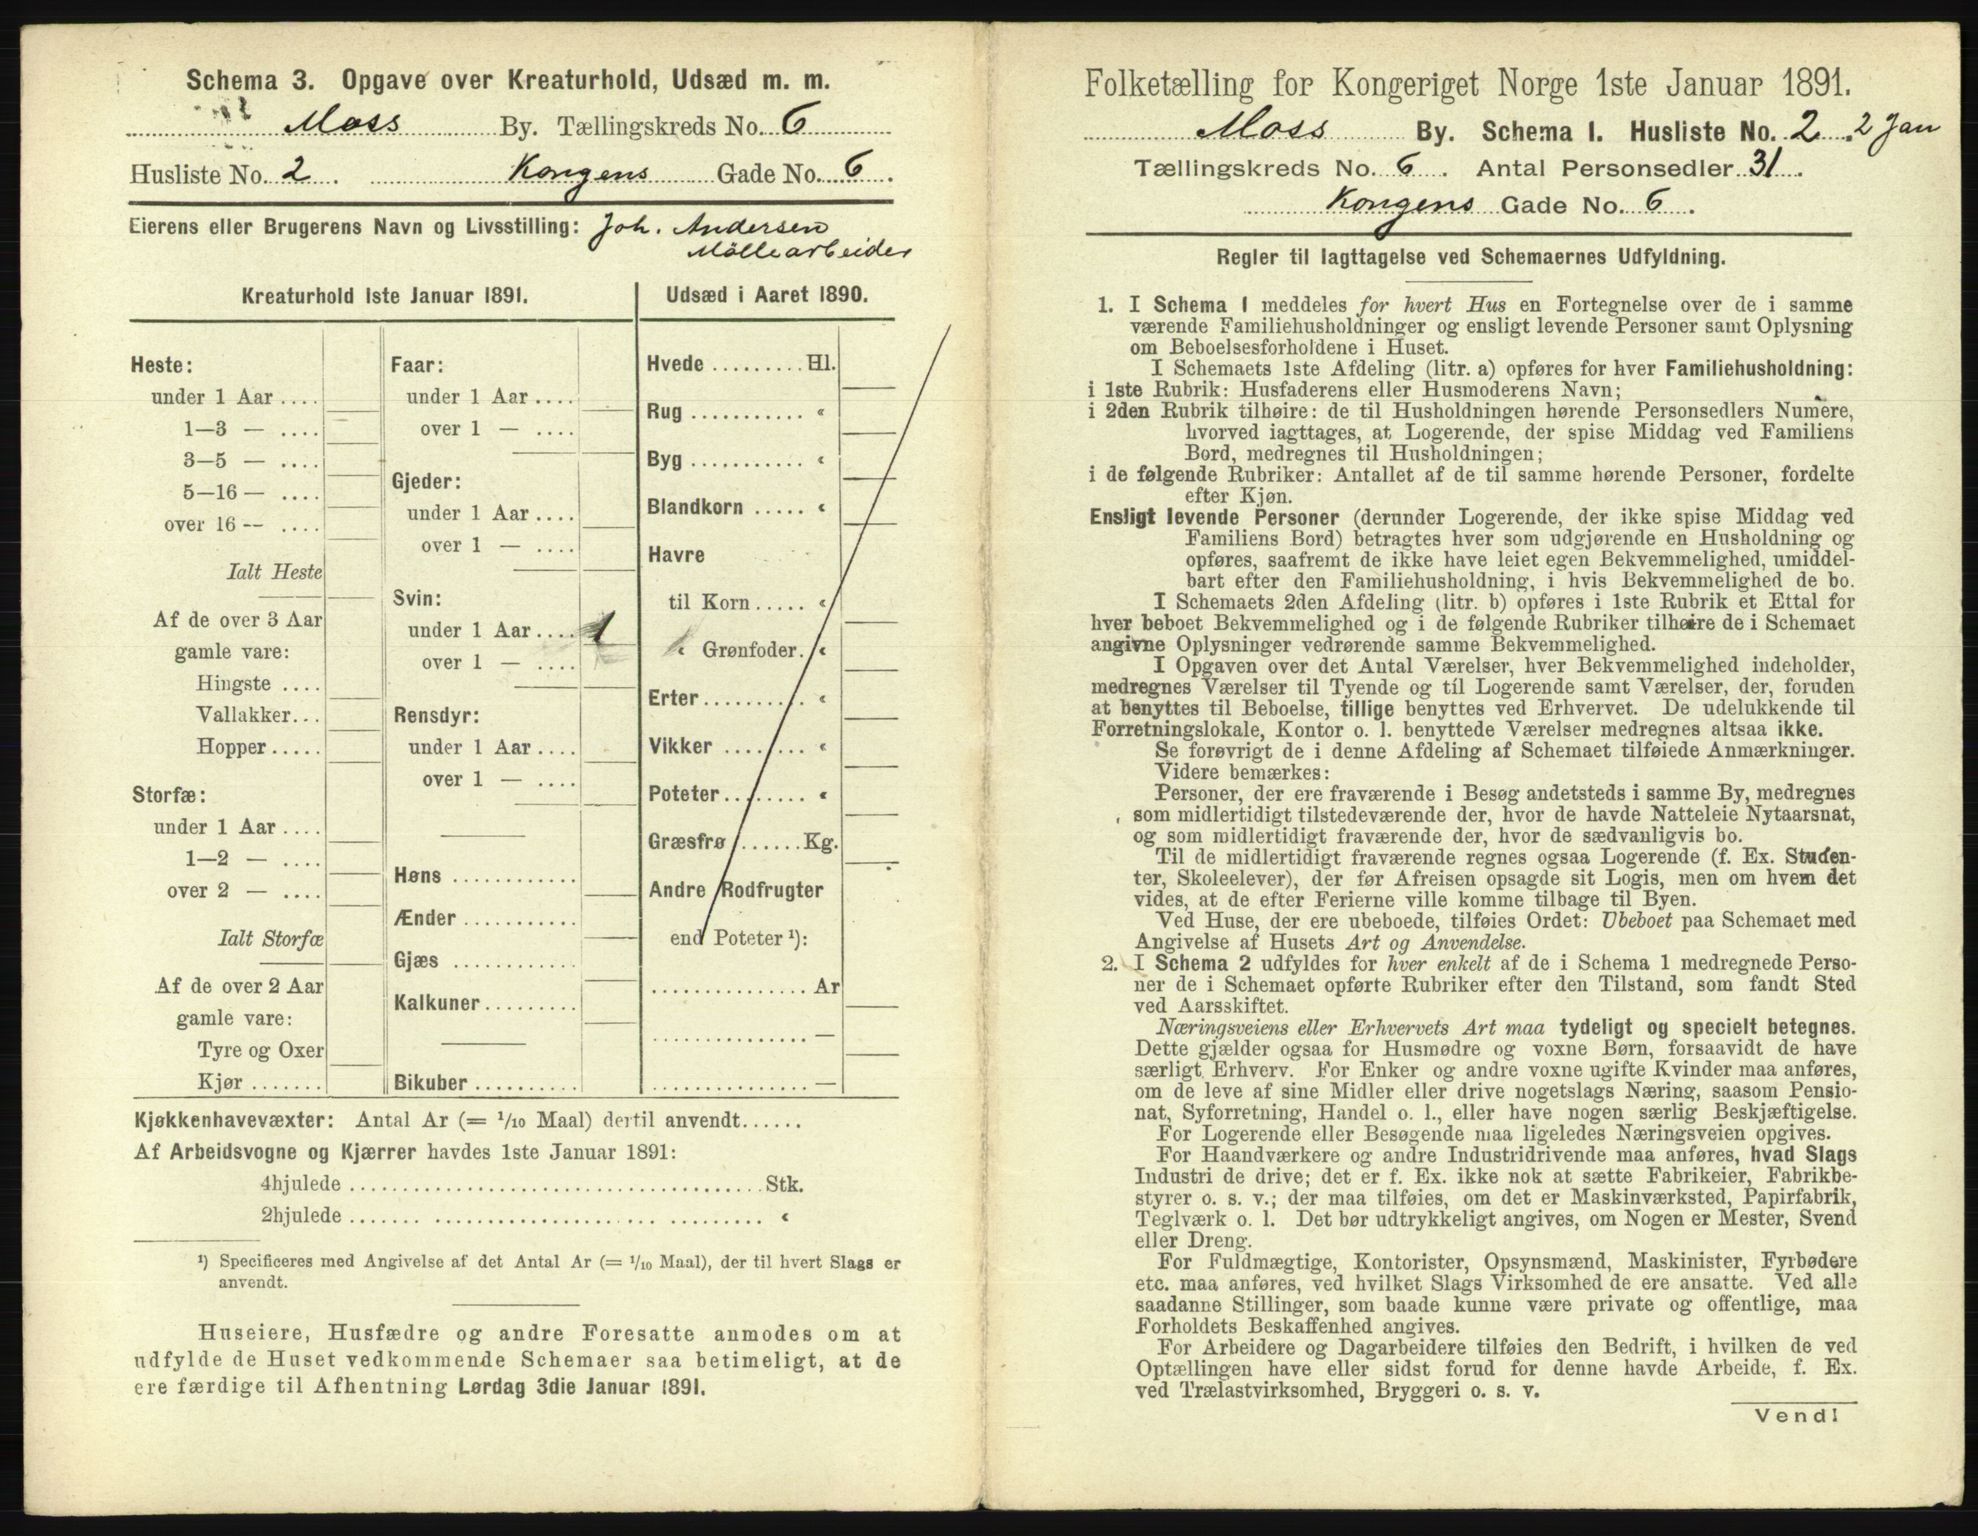 Schema 3. Opgave over Kreaturhold, Udsæd m. m.
Moss By. Tællingskreds No. 6
Husliste No. 2. Kongens Gade No. 6.
Eierens eller Brugerens Navn og Livsstilling: Joh. Andersen
Möllearbeider
Kreaturhold 1ste Januar 1891.
Heste:
under 1 Aar ....
1—3 — ....
3—5 — ....
5—16 — ....
over 16 — ....
Ialt Heste
Af de over 3 Aar
gamle vare:
Hingste ....
Vallakker...
Hopper.....
Storfæ:
under 1 Aar ....
1—2 — ....
over 2 — ....
Ialt Storfæ
Af de over 2 Aar
gamle vare:
Tyre og Oxer
Kjør.......
Faar:
under 1 Aar....
over 1 — ....
Gjeder:
under 1 Aar....
over 1 — ....
Svin:
under 1 Aar.... 1
over 1 — ....
Rensdyr:
under 1 Aar....
over 1 — ....
Høns ............
Ænder ...........
Gjæs ............
Kalkuner.........
Bikuber..........
Udsæd i Aaret 1890.
Hvede .........Hl.
Rug ........... “
Byg ........... “
Blandkorn ..... “
Havre
til Korn..... “
“ Grønfoder. “
Erter.......... “
Vikker ........ “
Poteter........ “
Græsfrø .......Kg.
Andre Rodfrugter
end Poteter ¹):
...............Ar
............... —
............... —
Kjøkkenhavevæxter: Antal Ar (= 1/10 Maal) dertil anvendt......
Af Arbeidsvogne og Kjærrer havdes 1ste Januar 1891:
4hjulede ........................................Stk.
2hjulede ........................................ “
¹) Specificeres med Angivelse af det Antal Ar (= 1/10 Maal), der til hvert Slags er
anvendt.
Huseiere, Husfædre og andre Foresatte anmodes om at
udfylde de Huset vedkommende Schemaer saa betimeligt, at de
ere færdige til Afhentning Lørdag 3die Januar 1891.
Folketælling for Kongeriget Norge 1ste Januar 1891.
Moss By. Schema 1. Husliste No. 2. 2 Jan
Tællingskreds No. 6. Antal Personsedler 31.
Kongens Gade No. 6.
Regler til Iagttagelse ved Schemaernes Udfyldning.
1. I Schema 1 meddeles for hvert Hus en Fortegnelse over de i samme
værende Familiehusholdninger og ensligt levende Personer samt Oplysning
om Beboelsesforholdene i Huset.
I Schemaets 1ste Afdeling (litr. a) opføres for hver Familiehusholdning:
i 1ste Rubrik: Husfaderens eller Husmoderens Navn;
i 2den Rubrik tilhøire: de til Husholdningen hørende Personsedlers Numere,
hvorved iagttages, at Logerende, der spise Middag ved Familiens
Bord, medregnes til Husholdningen;
i de følgende Rubriker: Antallet af de til samme hørende Personer, fordelte
efter Kjøn.
Ensligt levende Personer (derunder Logerende, der ikke spise Middag ved
Familiens Bord) betragtes hver som udgjørende en Husholdning og
opføres, saafremt de ikke have leiet egen Bekvemmelighed, umiddel-
bart efter den Familiehusholdning, i hvis Bekvemmelighed de bo.
I Schemaets 2den Afdeling (litr. b) opføres i 1ste Rubrik et Ettal for
hver beboet Bekvemmelighed og i de følgende Rubriker tilhøire de i Schemaet
angivne Oplysninger vedrørende samme Bekvemmelighed.
I Opgaven over det Antal Værelser, hver Bekvemmelighed indeholder,
medregnes Værelser til Tyende og til Logerende samt Værelser, der, foruden
at benyttes til Beboelse, tillige benyttes ved Erhvervet. De udelukkende til
Forretningslokale, Kontor o. l. benyttede Værelser medregnes altsaa ikke.
Se forøvrigt de i denne Afdeling af Schemaet tilføiede Anmærkninger.
Videre bemærkes:
Personer, der ere fraværende i Besøg andetsteds i samme By, medregnes
som midlertidigt tilstedeværende der, hvor de havde Natteleie Nytaarsnat,
og som midlertidigt fraværende der, hvor de sædvanligvis bo.
Til de midlertidigt fraværende regnes ogsaa Logerende (f. Ex. Studen-
ter, Skoleelever), der før Afreisen opsagde sit Logis, men om hvem det
vides, at de efter Ferierne ville komme tilbage til Byen.
Ved Huse, der ere ubeboede, tilføies Ordet: Ubeboet paa Schemaet med
Angivelse af Husets Art og Anvendelse.
2. I Schema 2 udfyldes for hver enkelt af de i Schema 1 medregnede Perso-
ner de i Schemaet opførte Rubriker efter den Tilstand, som fandt Sted
ved Aarsskiftet.
Næringsveiens eller Erhvervets Art maa tydeligt og specielt betegnes.
Dette gjælder ogsaa for Husmødre og voxne Børn, forsaavidt de have
særligt Erhverv. For Enker og andre voxne ugifte Kvinder maa anføres,
om de leve af sine Midler eller drive nogetslags Næring, saasom Pensio-
nat, Syforretning, Handel o. l., eller have nogen særlig Beskjæftigelse.
For Logerende eller Besøgende maa ligeledes Næringsveien opgives.
For Haandværkere og andre Industridrivende maa anføres, hvad Slags
Industri de drive; det er f. Ex. ikke nok at sætte Fabrikeier, Fabrikbe-
styrer o. s. v.; der maa tilføies, om det er Maskinværksted, Papirfabrik,
Teglværk o. l. Det bør udtrykkeligt angives, om Nogen er Mester, Svend
eller Dreng.
For Fuldmægtige, Kontorister, Opsynsmænd, Maskinister, Fyrbødere
etc. maa anføres, ved hvilket Slags Virksomhed de ere ansatte. Ved alle
saadanne Stillinger, som baade kunne være private og offentlige, maa
Forholdets Beskaffenhed angives.
For Arbeidere og Dagarbeidere tilføies den Bedrift, i hvilken de ved
Optællingen have eller sidst forud for denne havde Arbeide, f. Ex.
ved Trælastvirksomhed, Bryggeri o. s. v.
Vend!